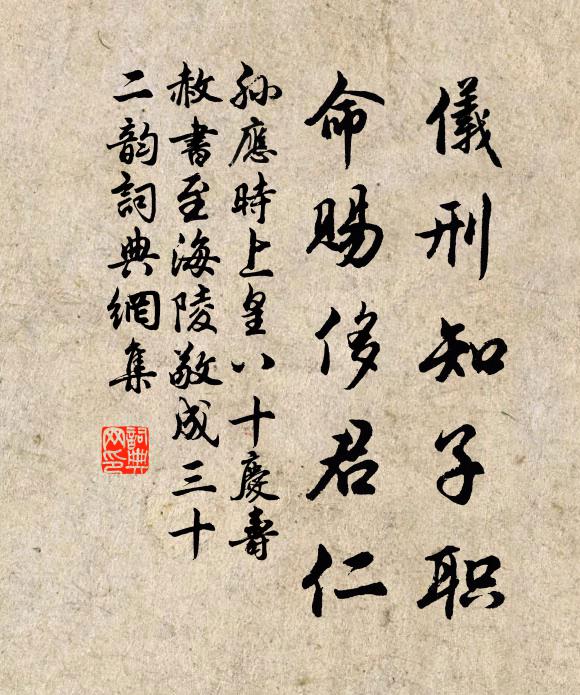 儀刑知子职
命賜侈君仁
孙應時上皇八十慶壽
赦書至海陵敬成三十
二韵詞典網集
詞典网印